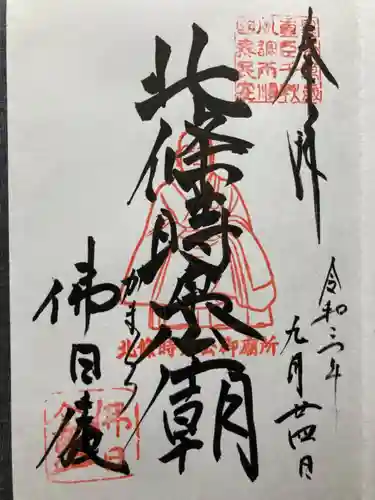 奉拝
北條時宗廟
北條時宗公御廟所
かまくら
佛日庵
令和三年
九月廿四日